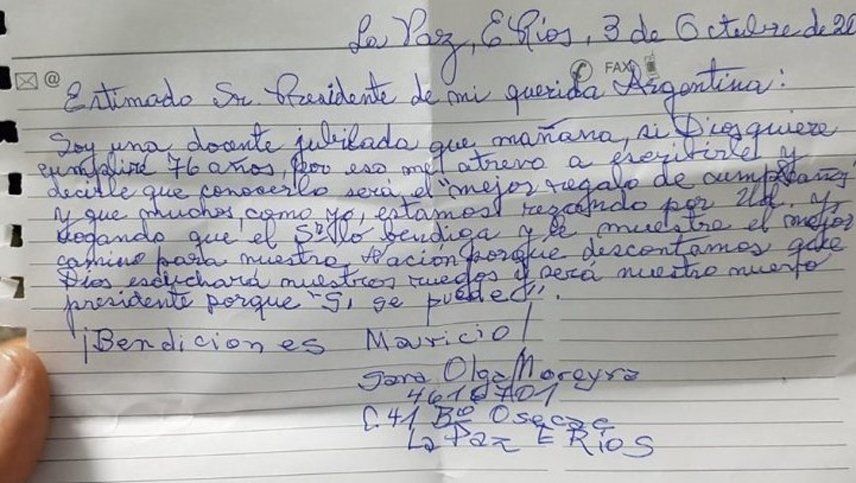 La Paz, E.Ríos, 3 de Octubre de 20
@ FAX
Estimado Sr. Presidente de mi querida Argentina:
Soy una docente jubilada que mañana, si Dios quiere
cumpliré 76 años, por eso me atrevo a escribirle y
decirle que conocerlo será el "mejor regalo de cumpleaños"
y que muchos, como yo, estamos rezando por Ud. y
rogando que el Sr lo bendiga y le muestre el mejor
camino para nuestra Nación porque descontamos que
Dios escuchará nuestros ruegos y será nuestro nuevo
presidente porque "Sí, se puede".
¡Bendiciones Mauricio!
Sara Olga Moreyra
C.41 Bº Osecac
La Paz E Ríos